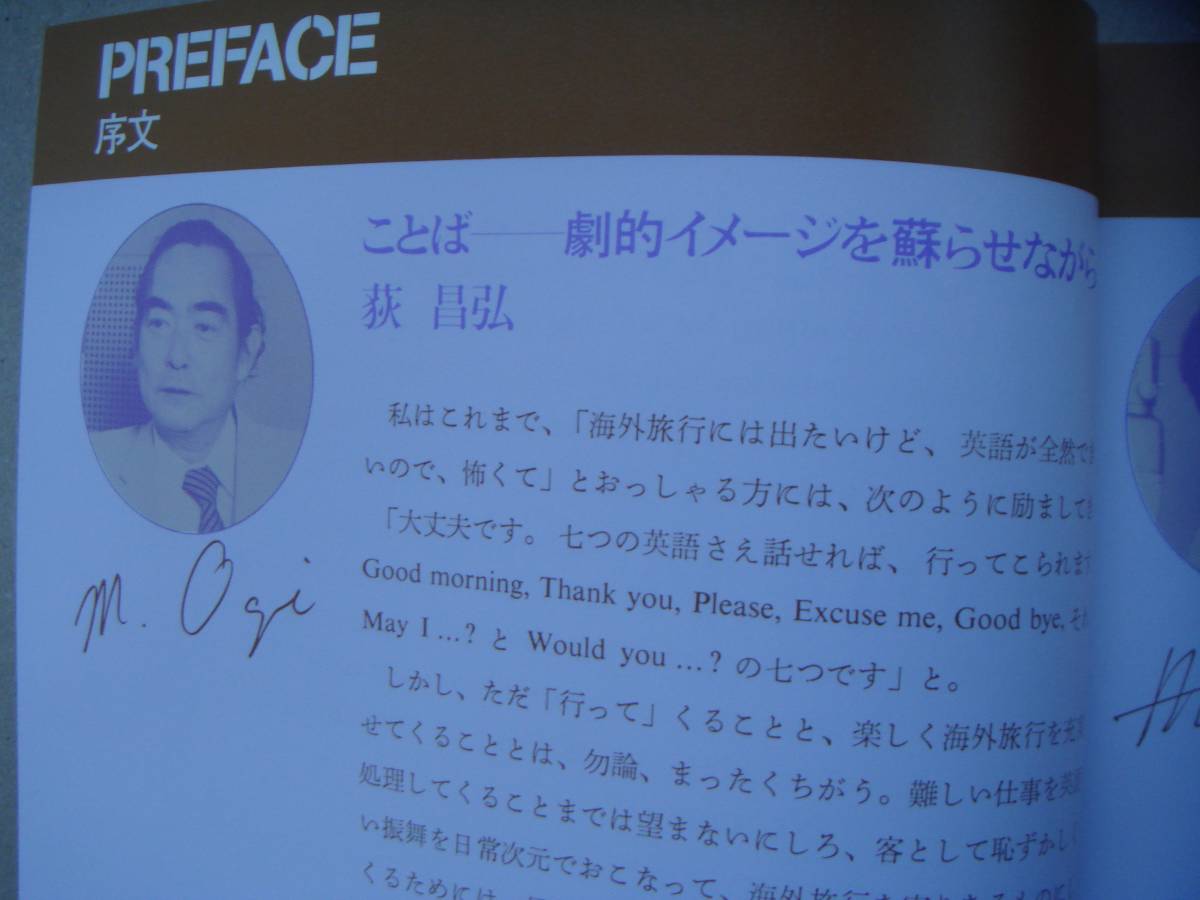 PREFACE
序文
ことば——劇的イメージを蘇らせながら
荻 昌弘
私はこれまで、「海外旅行には出たいけど、英語が全然で
いので、怖くて」とおっしゃる方には、次のように励まして
「大丈夫です。七つの英語さえ話せれば、行ってこられます
Good morning, Thank you, Please, Excuse me, Good bye, それ
May I …? と Would you …? の七つです」と。
しかし、ただ「行って」くることと、楽しく海外旅行を充
せてくることとは、勿論、まったくちがう。難しい仕事を英
処理してくることまでは望まないにしろ、客として恥ずかし
い振舞を日常次元でおこなって、海外旅行を
くるためには、
M. Ogi